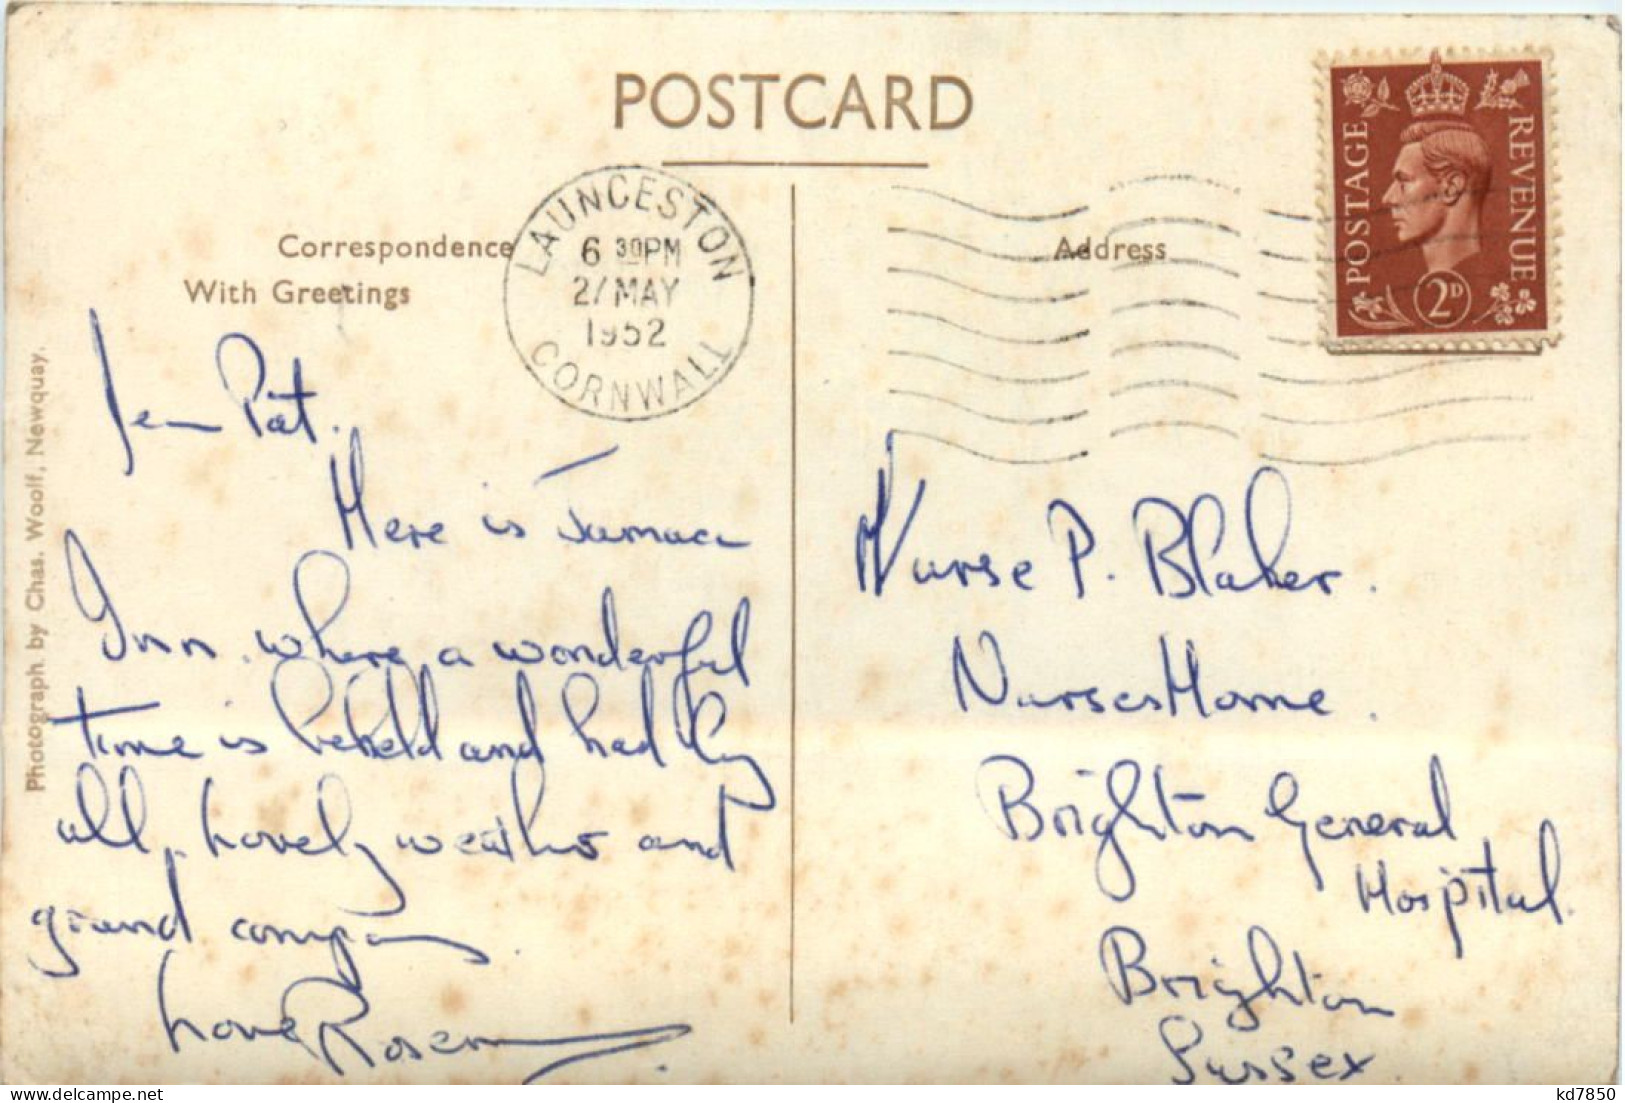 POSTCARD
Correspondence
With Greetings
LAUNCESTON
6 30PM
27 MAY
1952
CORNWALL
Address
POSTAGE
REVENUE
2D
Photograph by Chas. Woolf, Newquay.
Dear Pat.
Here is Jamaica
Inn. where a wonderful
time is beheld and had by
all, Lovely weather and
grand company.
Love Rosemary.
Nurse P. Blaker.
Nurses Home.
Brighton General
Hospital.
Brighton
Sussex
kd7850